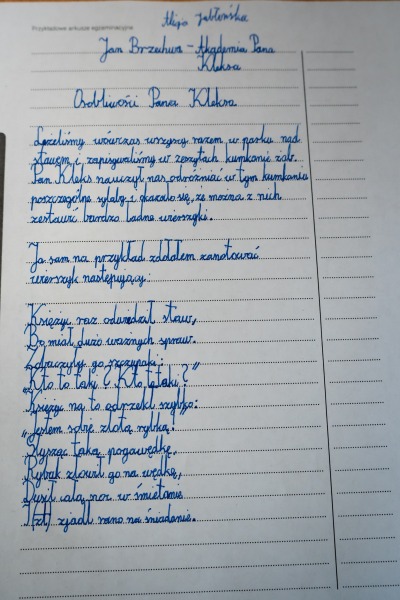 Alicja Jabłońska
Przykładowe arkusze egzaminacyjne
Jan Brzechwa - Akademia Pana
Kleksa
Osobliwości Pana Kleksa
Leżeliśmy wówczas wszyscy razem w parku nad
stawem i zapisywaliśmy w zeszytach kumkanie żab.
Pan Kleks nauczył nas odróżniać w tym kumkaniu
poszczególne sylaby i okazało się, że można z nich
zestawić bardzo ładne wierszyki.
Ja sam na przykład zdołałem zanotować
wierszyk następujący:
„Księżyc raz odwiedzał staw,
Bo miał dużo ważnych spraw.
Zobaczyły go szczupaki:
„Kto to taki? Kto to taki?"
Księżyc na to odrzekł szybko:
„Jestem sobie złotą rybką."
Słysząc taką pogawędkę,
Rybak złowił go na wędkę,
Dusił całą noc w śmietanie
I (zł) zjadł rano na śniadanie.